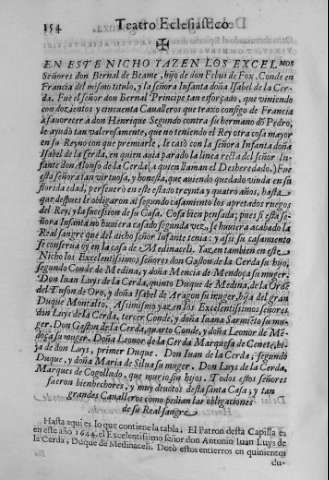 154 Teatro Eclesiastico
✠
EN ESTE NICHO YAZEN LOS EXCEL.MOS
Señores don Bernal de Bearne, hijo de don Febus de Fox, Conde en
Francia del mismo titulo, y la señora Infanta doña Isabel de la Cer-
da. Fue el señor don Bernal Principe tan esforçado, que viniendo
con dozientos y cincuenta Cavalleros que traxo consigo de Francia
à favorecer a don Henrique Segundo contra su hermano dõ Pedro,
le ayudò tan valerosamente, que no teniendo el Rey otra cosa mayor
en su Reyno con que premiarle, le casò con la señora Infanta doña
Isabel de la Cerda, en quien avia parado la linea recta del señor In-
fante don Alonso de la Cerda (a quien llaman el Desheredado.) Fue
esta señora tan virtuosa, y honesta, que aviendo quedado viuda en su
florida edad, perseverò en este estado treynta y quatro años, hasta
que despues le obligaron al segundo casamiento los apretados ruegos
del Rey, y la sucession de su Casa. Cosa bien pensada; pues si esta se-
ñora Infanta no huviera casado segunda vez, se huviera acabado la
Real sangre que del dicho señor Infante tenia; y assi su casamiento
se conserva oy en la casa de Medinaceli. Yazen tambien en este
Nicho los Excelentissimos señores don Gaston de la Cerda su hijo,
segundo Conde de Medina, y doña Mencia de Mendoça su muger.
Don Iuan Luys de la Cerda, quinto Duque de Medina, de la Ordẽ
del Tuson de Oro, y doña Isabel de Aragon su muger, hija del gran
Duque Montalto. Assimismo yazen los Excelentissimos señores,
don Luys de la Cerda, tercer Conde, y doña Iuana Sarmiẽto su mu-
ger. Don Gaston de la Cerda, quarto Conde, y doña Leonor de Mẽ-
doça su muger. Doña Leonor de la Cerda Marquesa de Cenete, hi-
ja de don Luys, primer Duque. Don Iuan de la Cerda, segundo
Duque, y doña Maria de Silva su muger. Don Luys de la Cerda,
Marques de Cogolludo, que murio sin hijos. Todos estos señores
fueron bienhechores, y muy devotos desta santa Casa, y tan
grandes Cavalleros como pedian las obligaciones
de su Real sangre.
Hasta aqui es lo que contiene la tabla. El Patron desta Capilla es
en este año 1644. el Excelentissimo señor don Antonio Iuan Luys de
la Cerda, Duque de Medinaceli. Dotò estos entierros en quinientos
du-